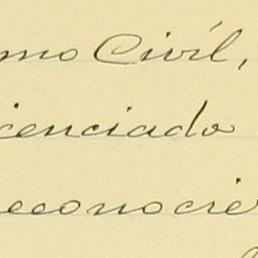 mo Civíl,
icenciado
econocie